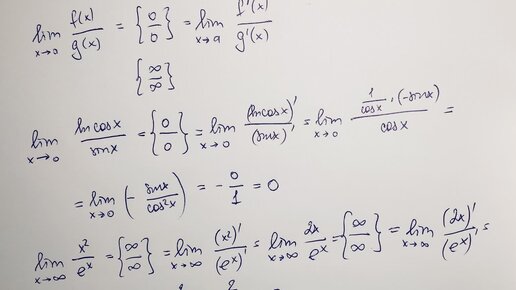 lim x→a f(x)/g(x) = {0/0} = lim x→a f'(x)/g'(x)
{∞/∞}
lim x→0 ln cos x/sin x = {0/0} = lim x→0 (ln cos x)'/(sin x)' = lim x→0 1/cos x · (-sin x)/cos x =
= lim x→0 (- sin x/cos²x) = - 0/1 = 0
lim x→∞ x²/eˣ = {∞/∞} = lim x→∞ (x²)'/(eˣ)' = lim x→∞ 2x/eˣ = {∞/∞} = lim x→∞ (2x)'/(eˣ)' =